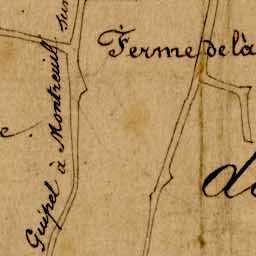 Ferme de là
Guipel à Montreuil sur
d